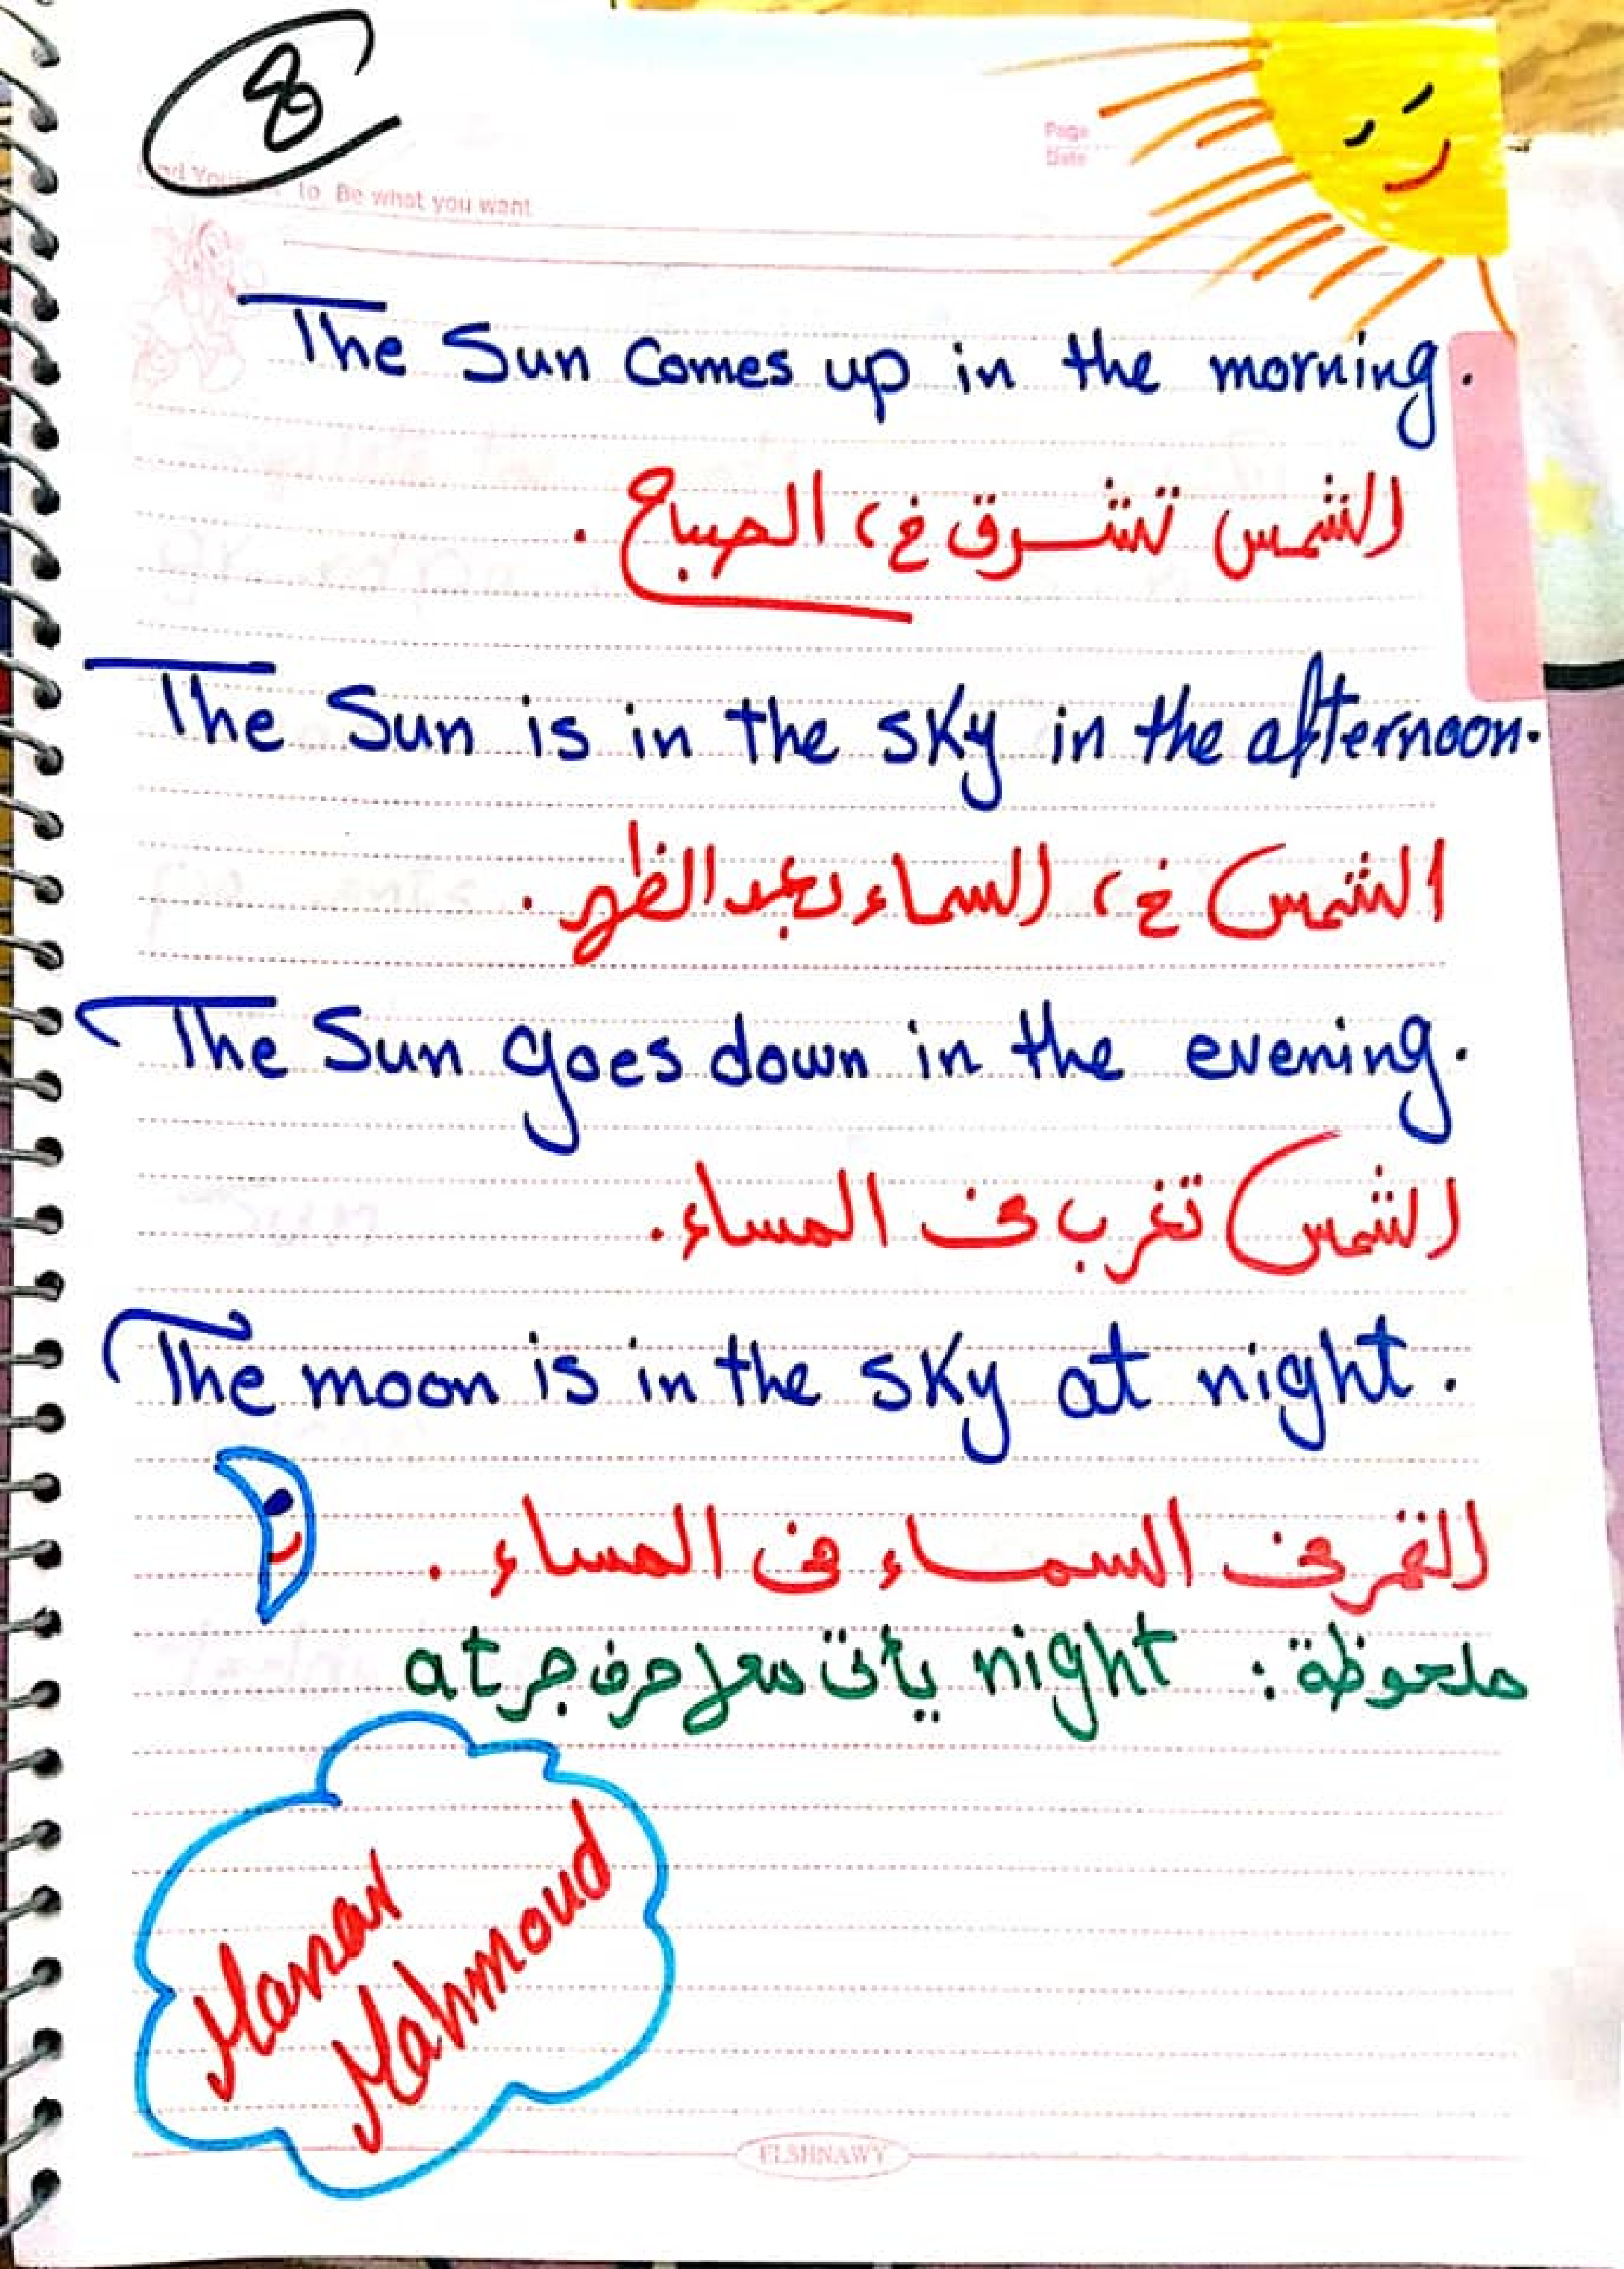 8
Page
Date
to Be what you want
The Sun Comes up in the morning.
الشمس تشرق في الصباح .
The Sun is in the sky in the afternoon.
الشمس في السماء بعد الظهر .
The Sun goes down in the evening.
الشمس تغرب في المساء .
The moon is in the sky at night.
القمر في السماء في المساء .
ملحوظة : night يأتى معها حرف جر at
Manar
Mahmoud
ELSHNAWY